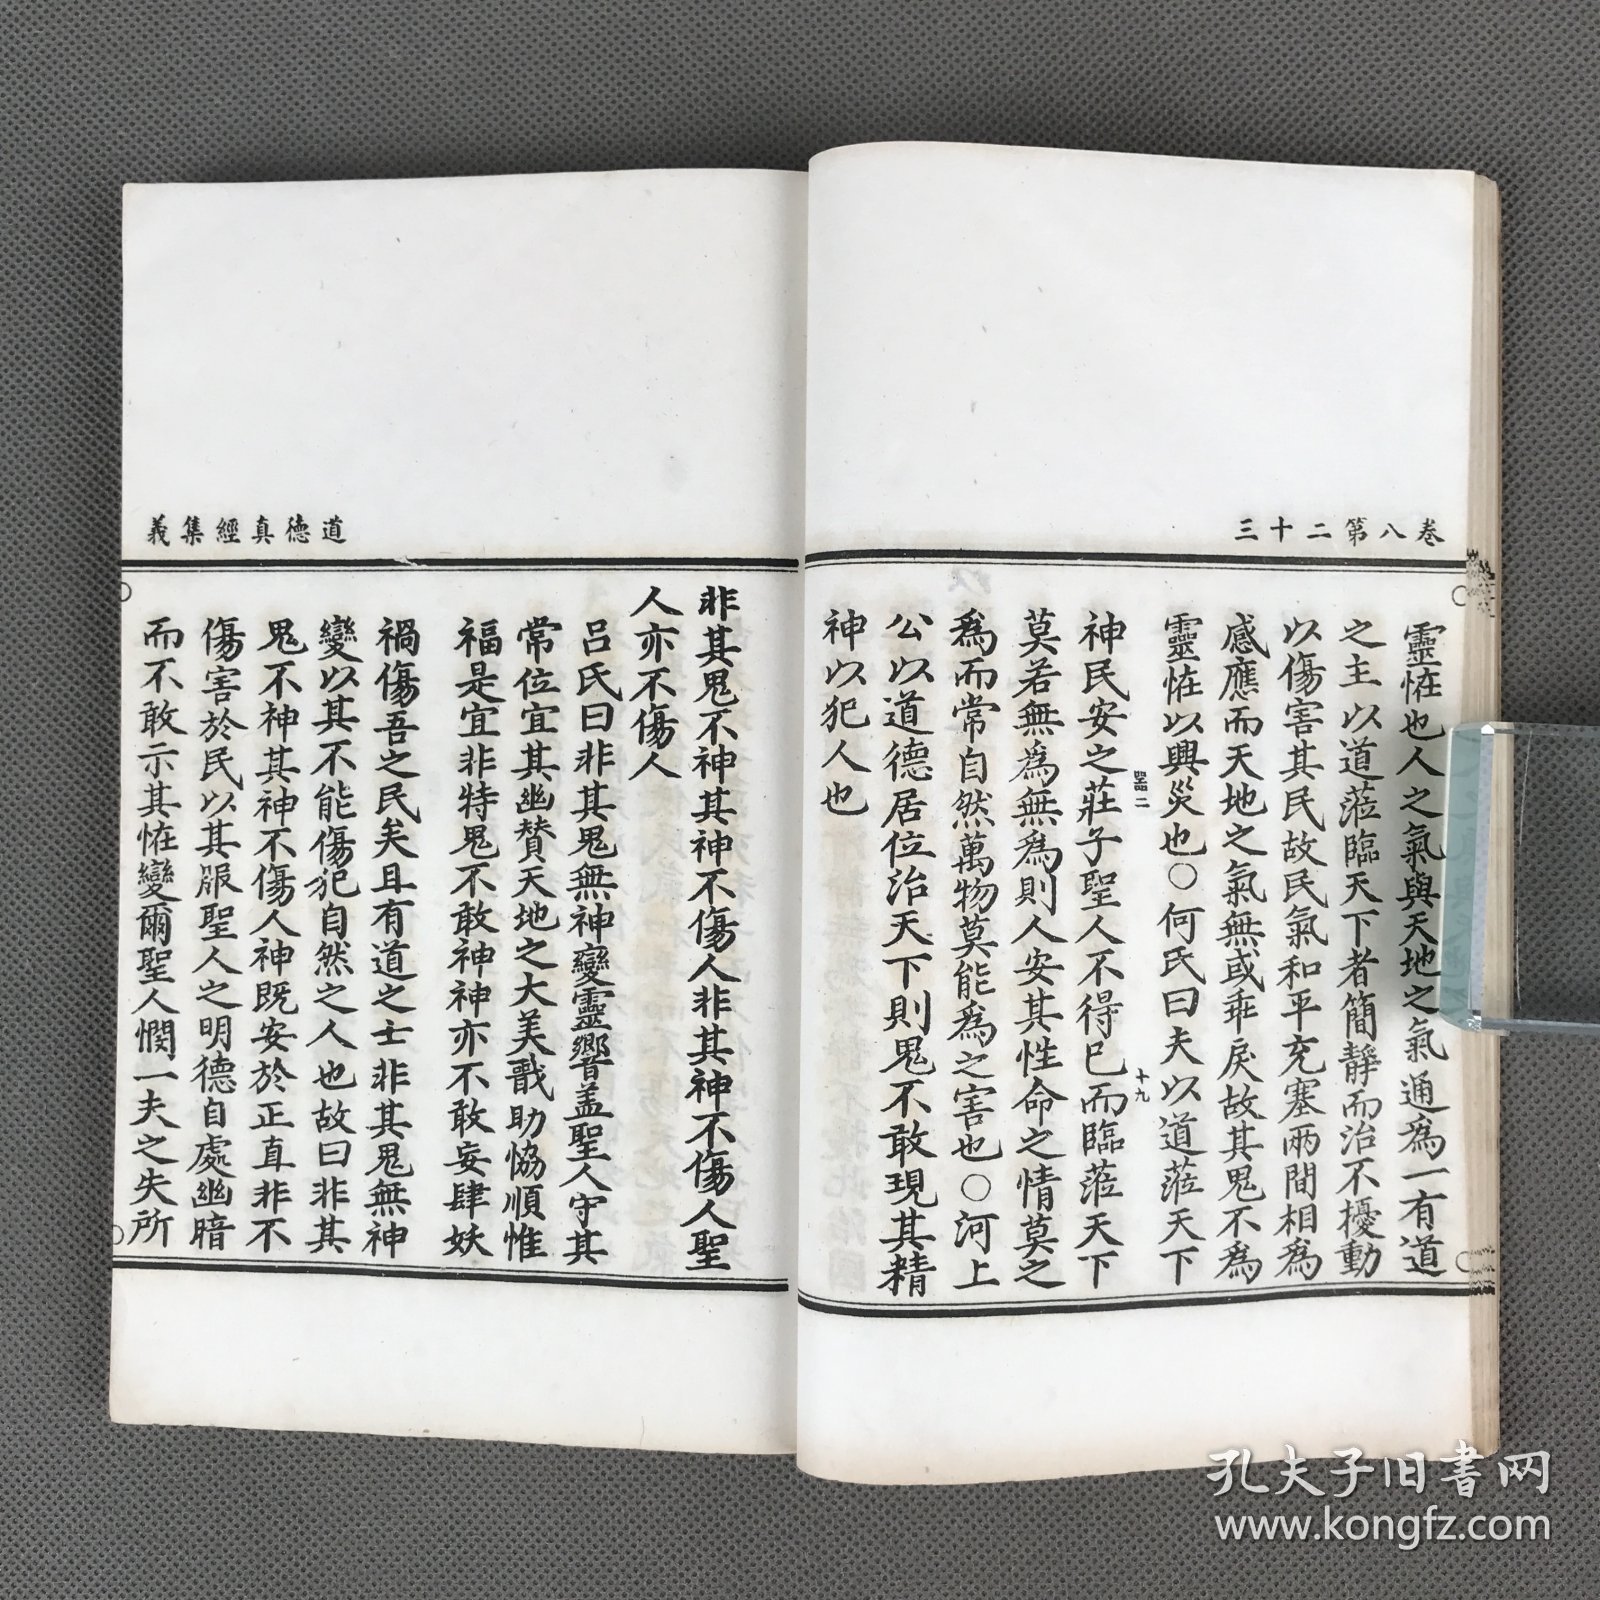 卷八第二十三
靈恠也人之氣與天地之氣通爲一有道
之主以道蒞臨天下者簡靜而治不擾動
以傷害其民故民氣和平充塞兩間相爲
感應而天地之氣無或乖戾故其鬼不爲
靈恠以興災也○何氏曰夫以道蒞天下
十九
神民安之莊子聖人不得已而臨蒞天下
莫若無爲無爲則人安其性命之情莫之
爲而常自然萬物莫能爲之害也○河上
公以道德居位治天下則鬼不敢現其精
神以犯人也
道德真經集義
非其鬼不神其神不傷人非其神不傷人聖
人亦不傷人
呂氏曰非其鬼無神變靈響盖聖人守其
常位宜其幽贊天地之大美戬助恊順惟
福是宜非特鬼不敢神神亦不敢妄肆妖
禍傷吾之民矣且有道之士非其鬼無神
變以其不能傷犯自然之人也故曰非其
鬼不神其神不傷人神既安於正直非不
傷害於民以其服聖人之明德自處幽暗
而不敢示其恠變爾聖人憫一夫之失所
孔夫子旧书网
www.kongfz.com